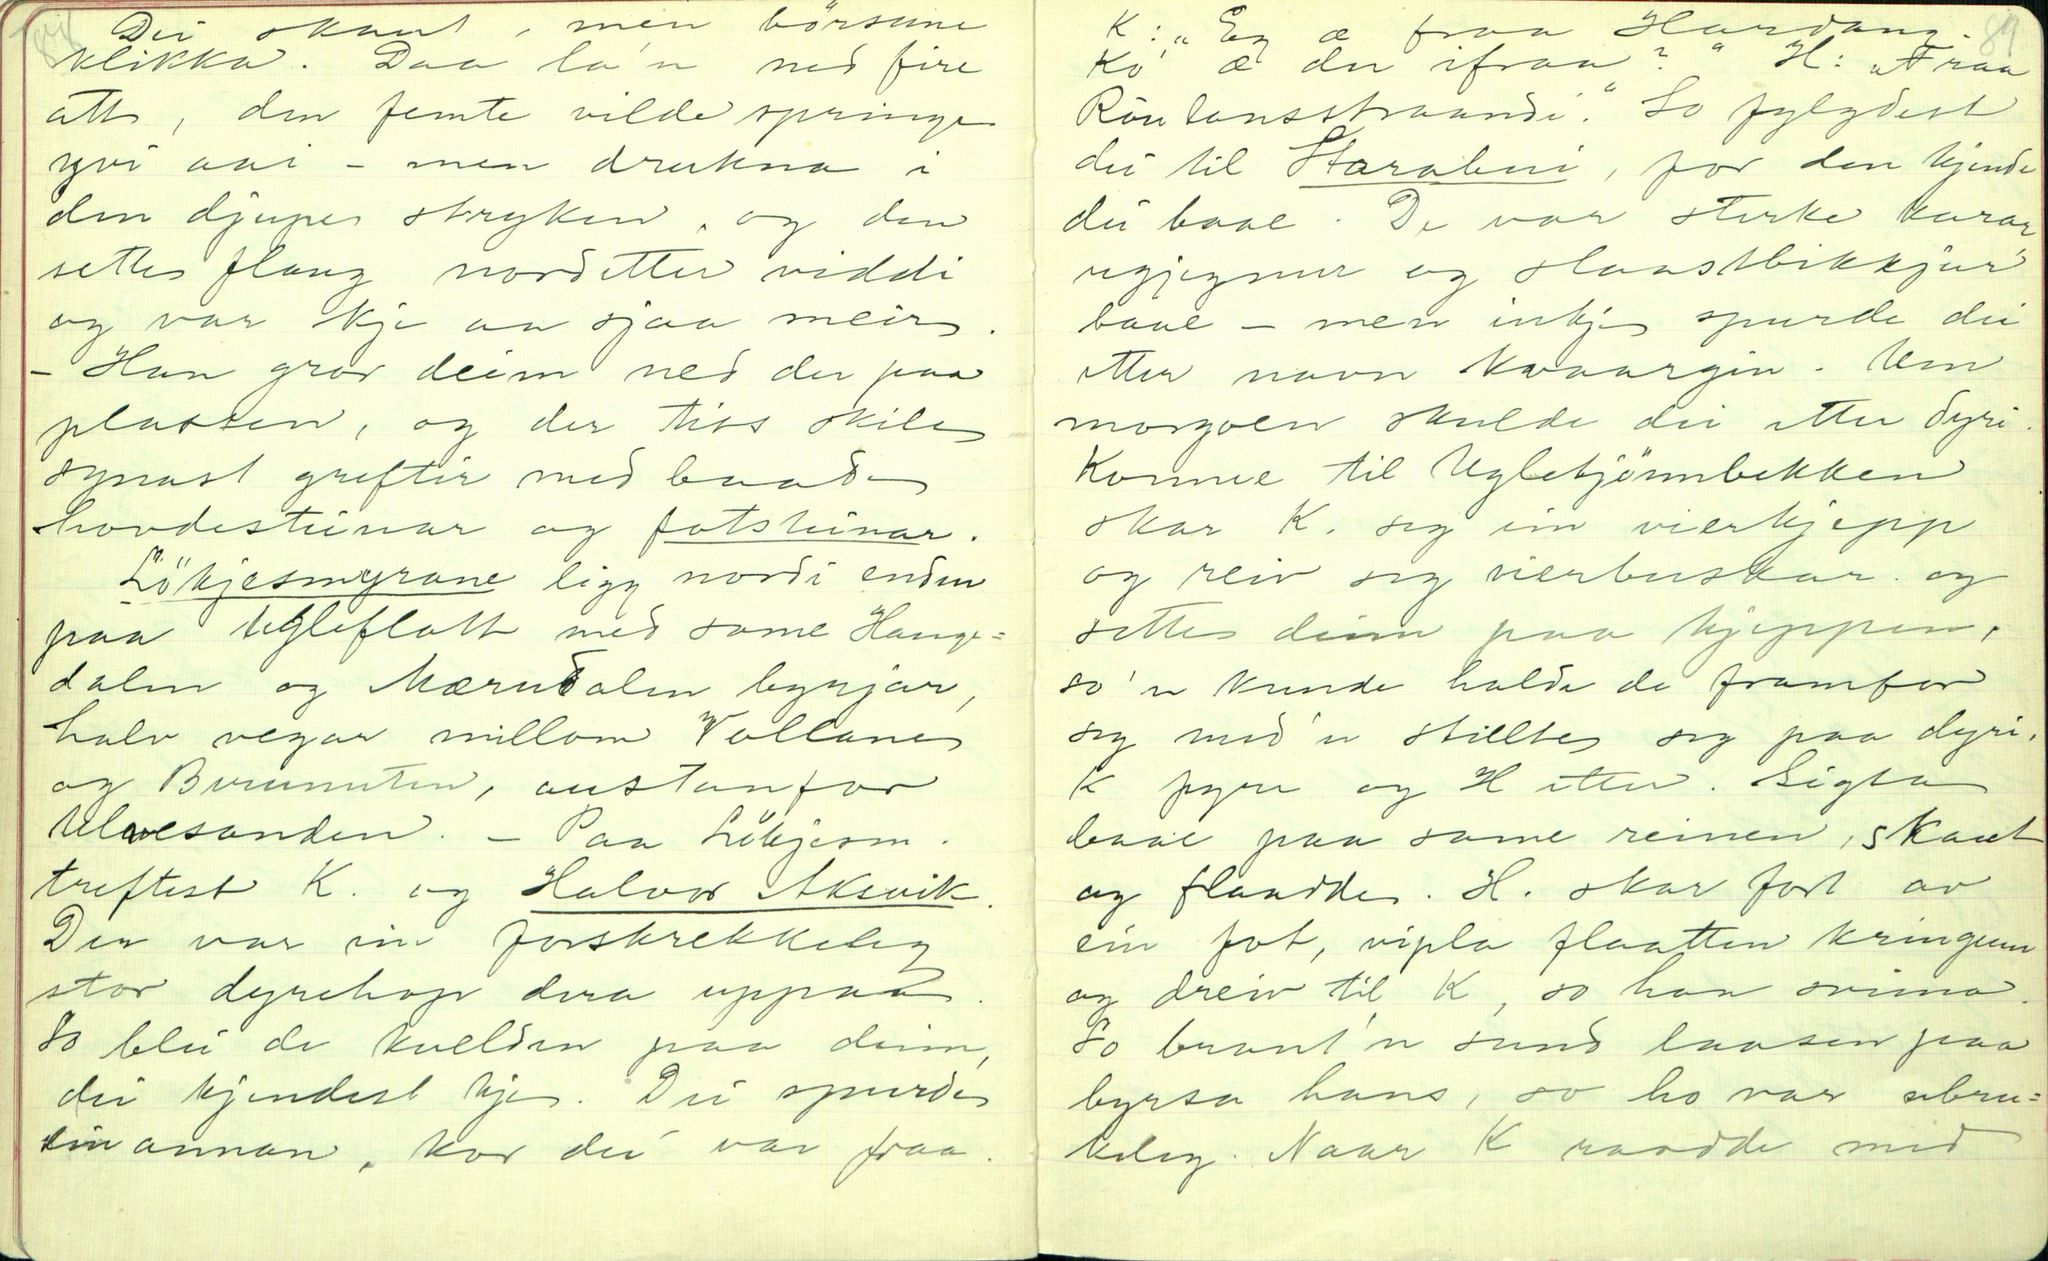 88
Dei skaut, men börsune
klikka. Daa la'n ned fire
att, den femte vilde springe
yvi aai - men drukna i
den djupe stryken, og den
sette flaug nordetter viddi
og var kje aa sjaa meir.
- Han grov deim ned der paa
plassen, og der tiss skile
synast grefter med baade
hovdesteinar og fotsteinar.
Lökjesmyrane ligg nordi enden
paa Ugleflott med same Hauge=
dalen og Mærudalen byrjar,
halv vegar millom Vollane
og Buunuten, austanfor
Ulvesanden. - Paa Lökjesm.
treftest K. og Halvor Aksvik.
Der var ein forskrekkeleg
stor dyrehop dera uppaa.
So blei de kvelden paa deim,
dei kjendest kje. Dei spurde
einannan, kor dei var fraa.
89
K: „Eg æ fraa Hardang.
Ko æ du ifraa?" H: „Fraa
Röulansstraandi." So fylgdest
dei til Starabui, for den kjende
dei baae. De var sterke karar
ugjegner og slaastbikkjur
baae - men inkje spurde dei
etter navn kvaargin. Um
morgoen skulde dei etter dyri.
Komne til Uglekjönnbekken
skar K. seg ein vierkjepp
og reiv seg vierbuskar og
sette deim paa kjeppen,
so'n kunde halde de framfor
seg med'n stillte seg paa dyri.
K fyre og H etter. Sigta
baae paa same reinen, skaut
og flaadde. H. skar fort av
ein fot, vipla flaatten kringum
og dreiv til K, so han svima.
So braut'n sund laasen paa
byrsa hans, so ho var ubru=
keleg. Naar K raadde med